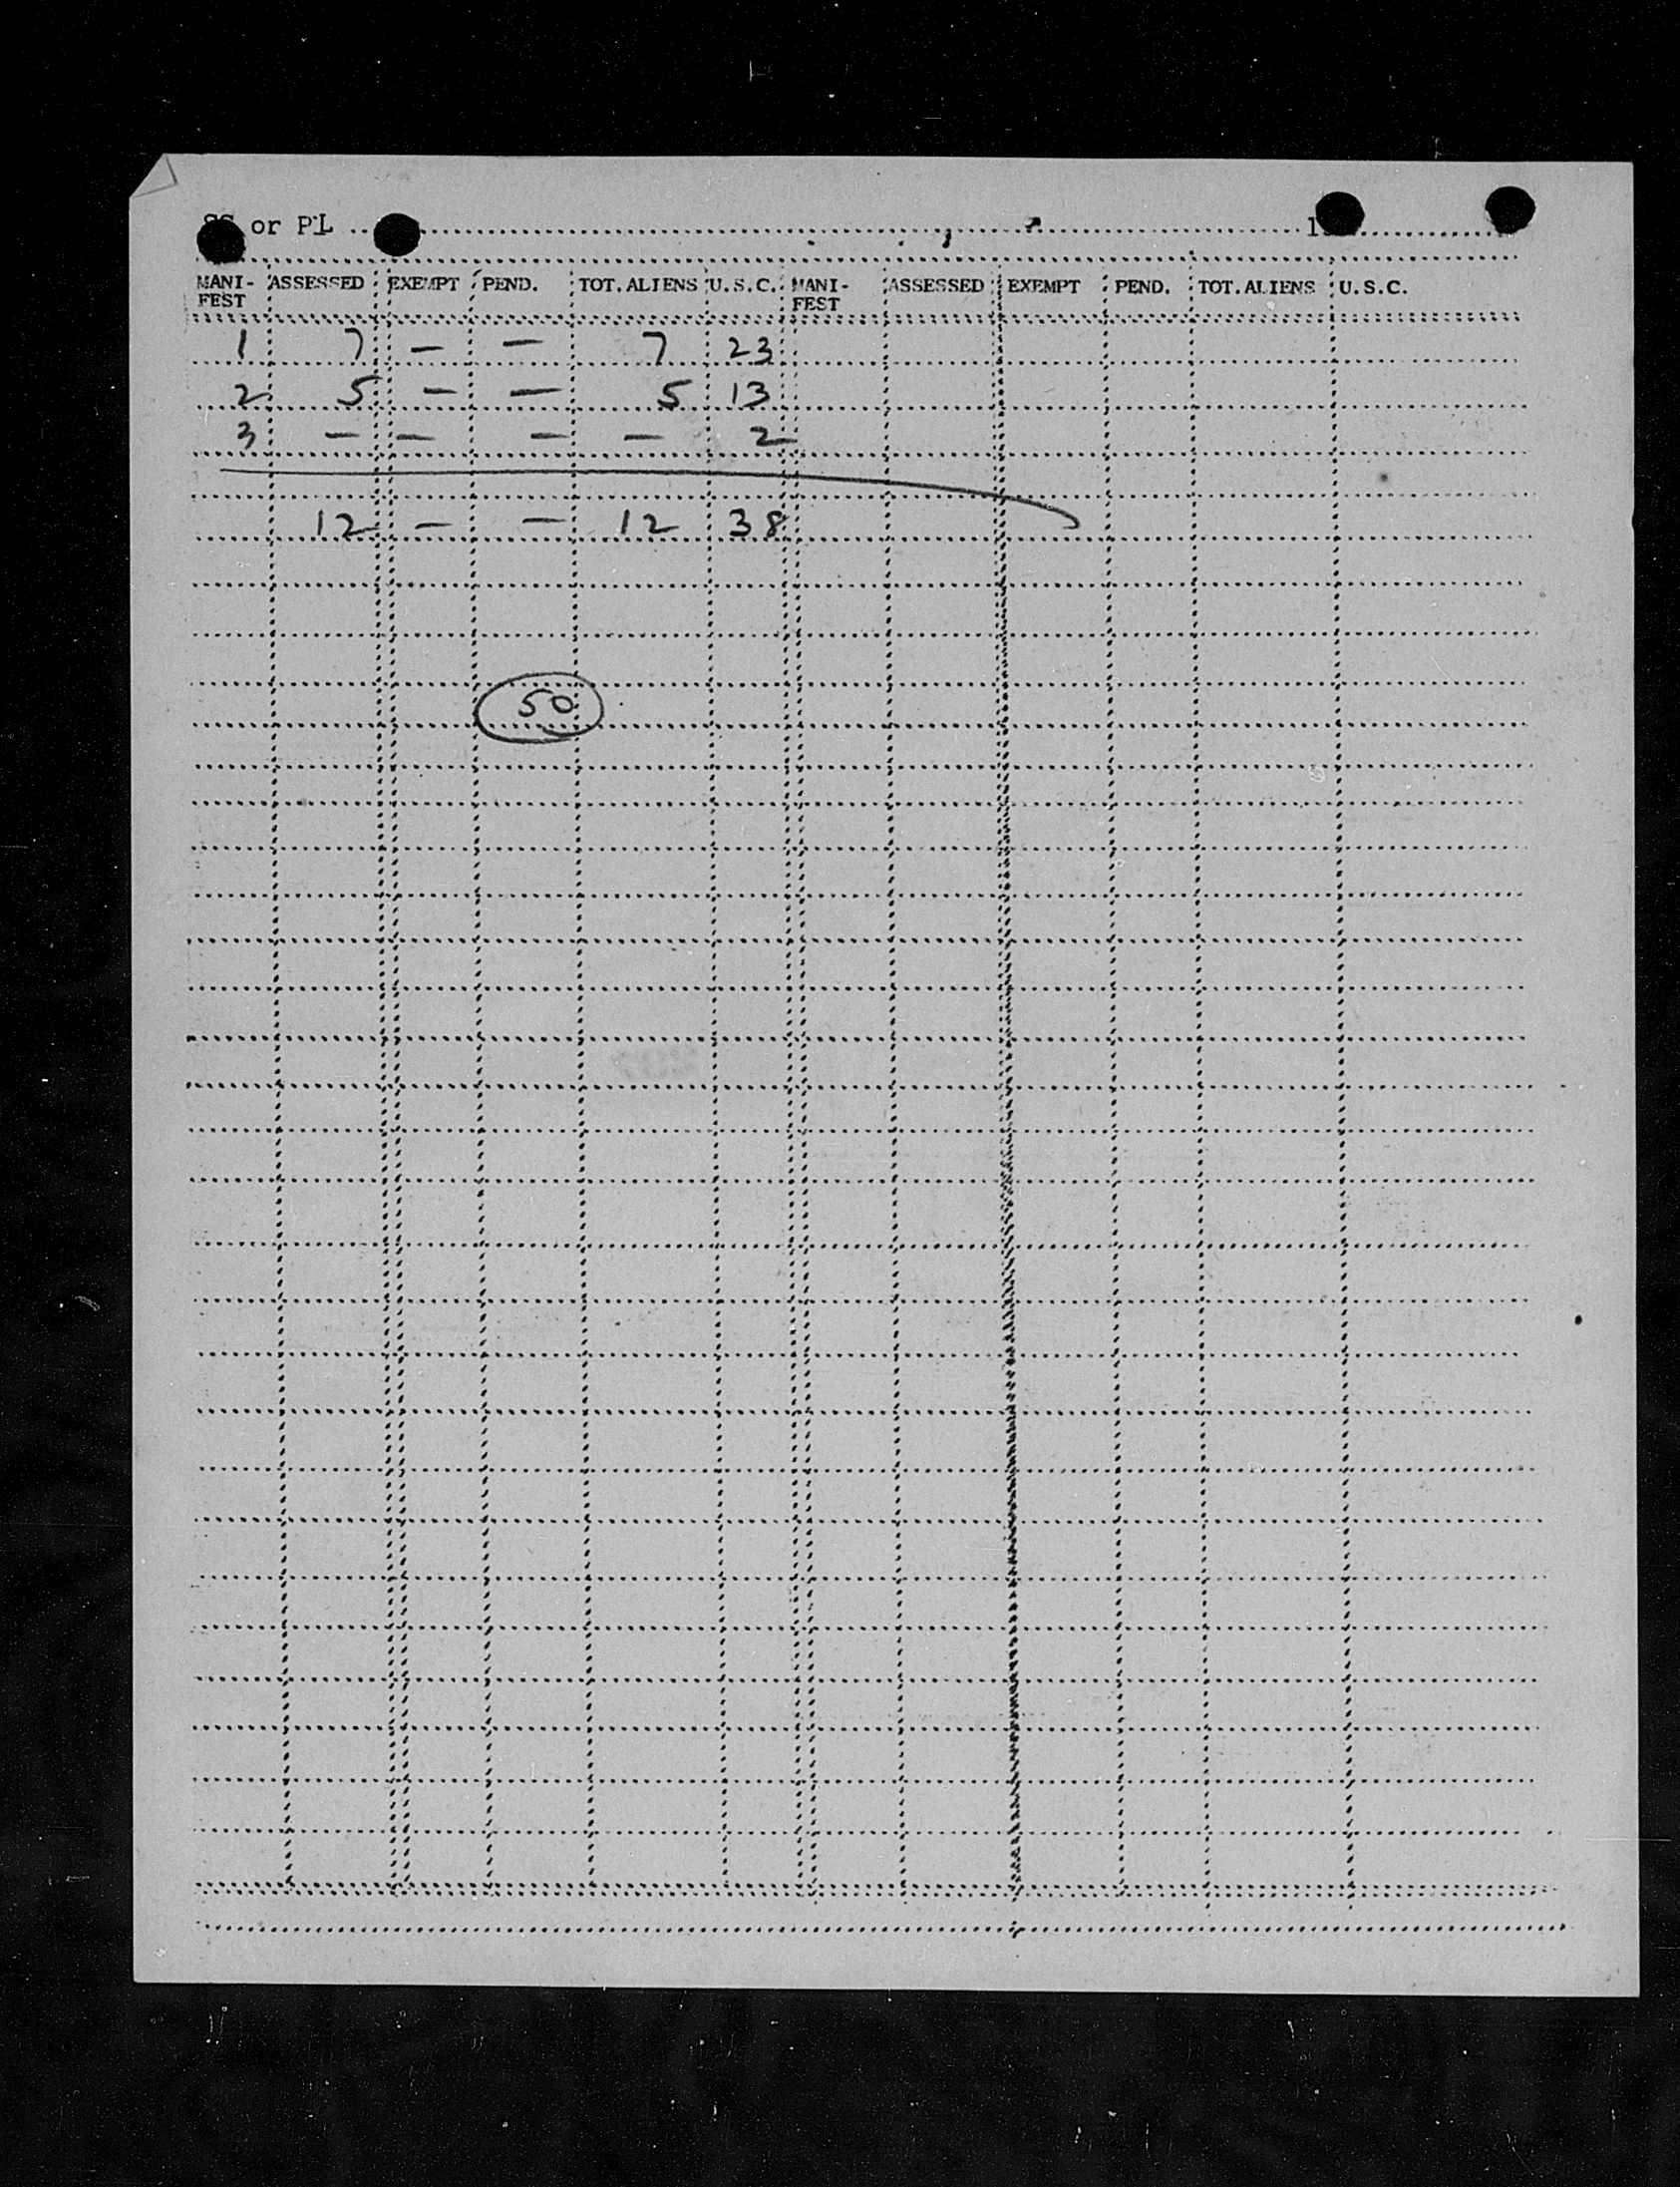 SS or PL 1
MANI-FEST ASSESSED EXEMPT PEND. TOT. ALIENS U.S.C. MANI-FEST ASSESSED EXEMPT PEND. TOT. ALIENS U.S.C.
1 7 — — 7 23
2 5 — — 5 13
3 — — — — 2
12 — — 12 38
50